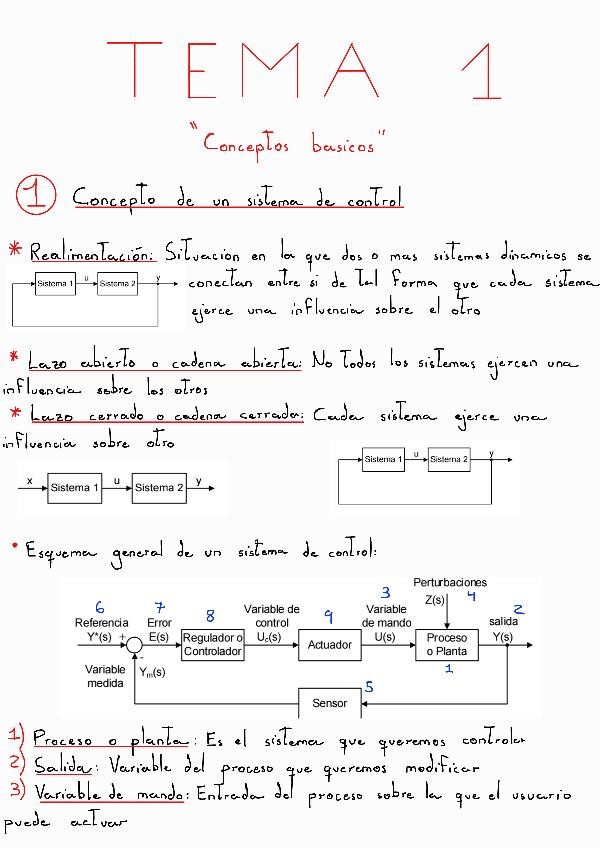 TEMA 1
"Conceptos basicos"
1 Concepto de un sistema de control
* Realimentación: Situación en la que dos o mas sistemas dinamicos se
conectan entre si de tal forma que cada sistema
ejerce una influencia sobre el otro
Sistema 1 u Sistema 2 y
* Lazo abierto o cadena abierta: No todos los sistemas ejercen una
influencia sobre los otros
* Lazo cerrado o cadena cerrada: Cada sistema ejerce una
influencia sobre otro
x Sistema 1 u Sistema 2 y
Sistema 1 u Sistema 2 y
• Esquema general de un sistema de control:
Perturbaciones
6 7 8 9 3 Z(s) 4 2
Referencia Error Variable de Variable salida
control de mando
Y*(s) + E(s) Regulador o Uc(s) Actuador U(s) Proceso Y(s)
Controlador o Planta
-
Variable Ym(s) 1
medida
5
Sensor
1) Proceso o planta: Es el sistema que queremos controlar
2) Salida: Variable del proceso que queremos modificar
3) Variable de mando: Entrada del proceso sobre la que el usuario
puede actuar